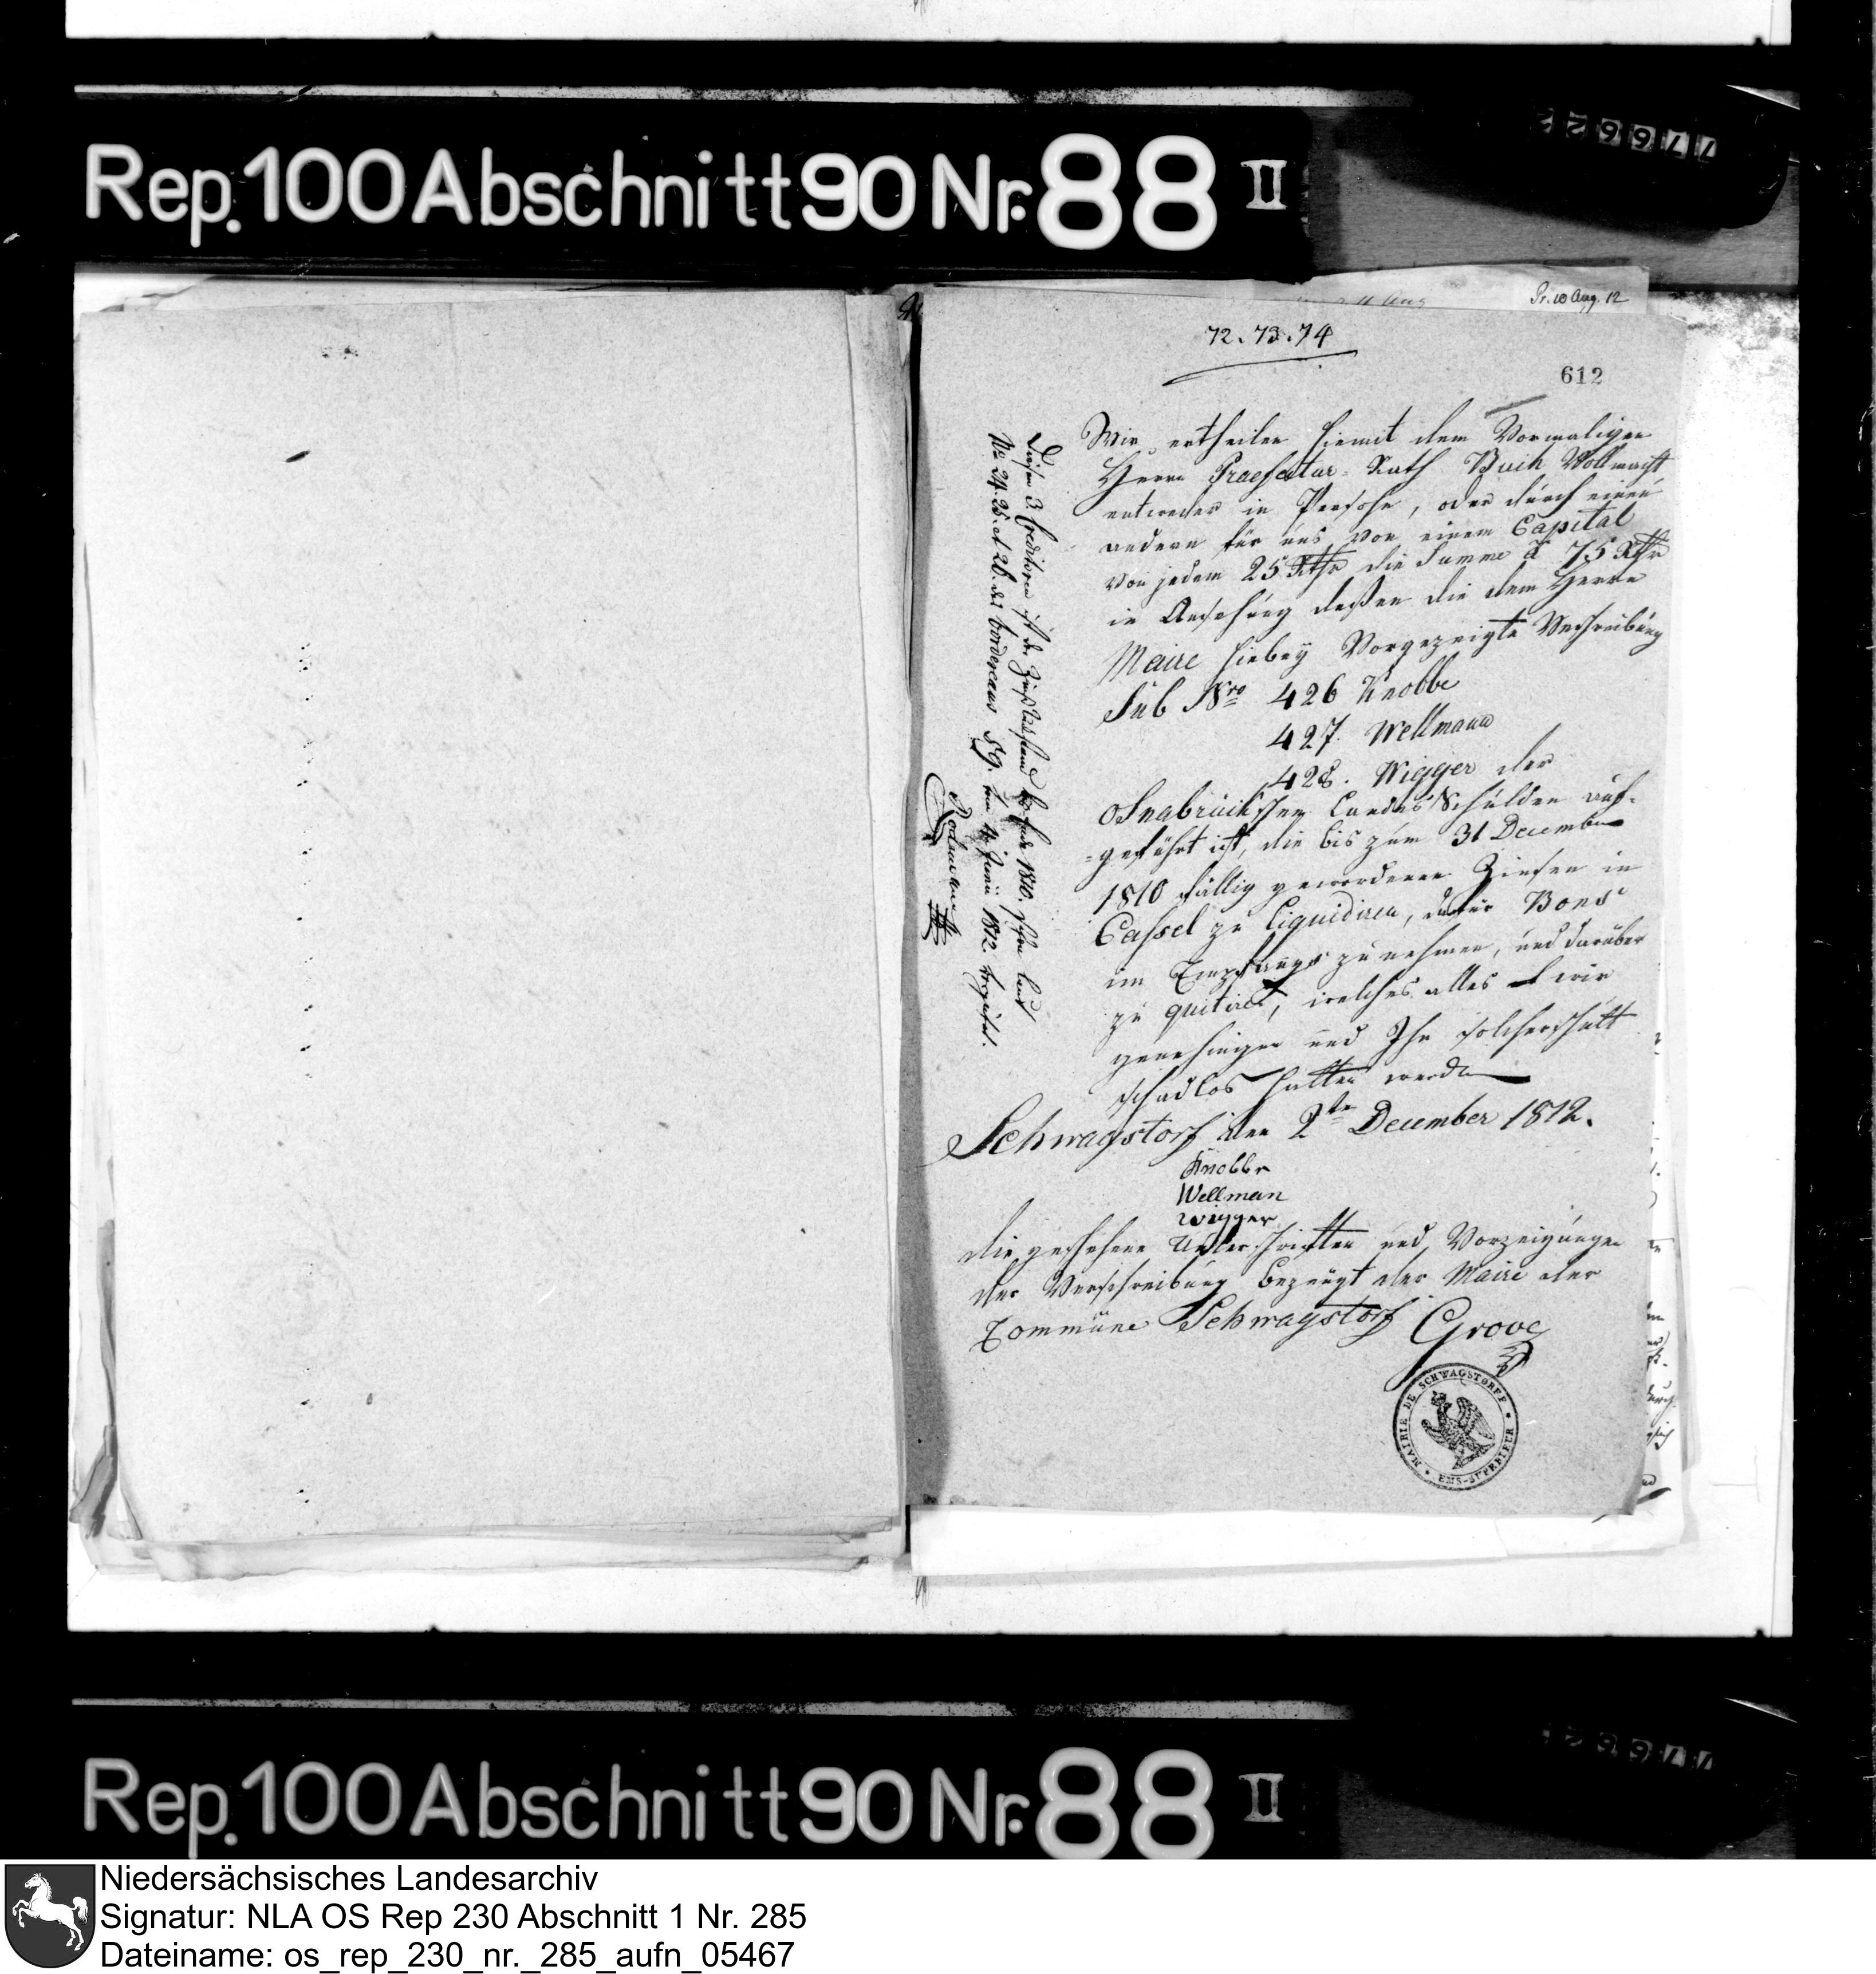 Rep. 100 Abschnitt 90 Nr. 88 II
Pr. 10 Aug. 12
72. 73. 74
612
Wir ertheilen hiemit dem Vormaligen
Herrn Praefectur-Rath Buch Vollmacht
entweder in Persohn, oder durch einen
andern für uns von einem Capital
von jedem 25 Rthr die Summe a 75 Rthr
in Ansehung deßen die dem Herrn
Maire hiebey Vorgezeigte Verschreibung
sub Nro 426 Knobbe
427. Wellmann
428. Wigger der
Osnabrückschen Landes Schulden auf-
-geführt ist, die bis zum 31 December
1810 fällig gewordenen Zinsen in
Cassel zu liquidiren, dafür Bons
im Empfang zu nehmen, und darüber
zu quitiren, welches alles wir
genehmigen und Ihn solcherhalb
schadlos halten werden
Schwagstorf den 2ten December 1812.
Knobbe
Wellman
Wigger
die geschehene Unterschriften und Vorzeigungen
der Verschreibung bezeugt der Maire der
Commüne Schwagstorf Grove
MAIRIE DE SCHWAGSTORFF • EMS-SUPERIEUR •
Diesen 3. Creditoren ist der Zinß Rückstand bis Ende 1810. schon laut
No 24. 25. et 26. des bordereaus 59. den 4. Junii 1812. vergütet.
Rep. 100 Abschnitt 90 Nr. 88 II
Niedersächsisches Landesarchiv
Signatur: NLA OS Rep 230 Abschnitt 1 Nr. 285
Dateiname: os_rep_230_nr._285_aufn_05467